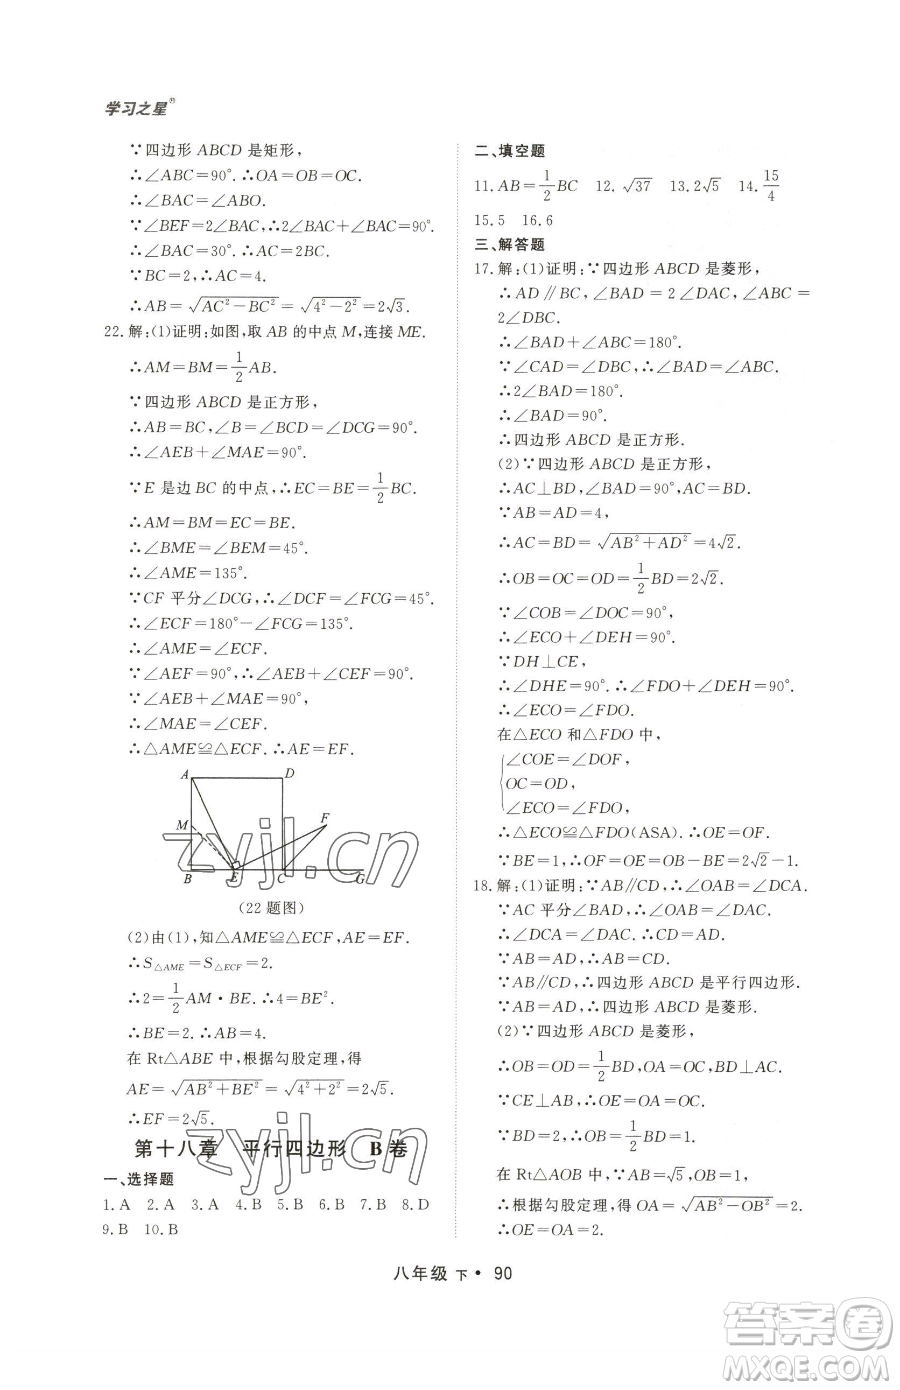 学习之星®
∵四边形 ABCD 是矩形，
∴∠ABC=90°. ∴OA=OB=OC.
∴∠BAC=∠ABO.
∵∠BEF=2∠BAC, ∴2∠BAC+∠BAC=90°.
∴∠BAC=30°. ∴AC=2BC.
∵BC=2, ∴AC=4.
∴AB=√(AC²-BC²)=√(4²-2²)=2√3.
22. 解:(1)证明:如图,取 AB 的中点 M,连接 ME.
∴AM=BM=1/2 AB.
∵四边形 ABCD 是正方形，
∴AB=BC, ∠B=∠BCD=∠DCG=90°.
∴∠AEB+∠MAE=90°.
∵E 是边 BC 的中点, ∴EC=BE=1/2 BC.
∴AM=BM=EC=BE.
∴∠BME=∠BEM=45°.
∴∠AME=135°.
∵CF 平分∠DCG, ∴∠DCF=∠FCG=45°.
∴∠ECF=180°-∠FCG=135°.
∴∠AME=∠ECF.
∵∠AEF=90°, ∴∠AEB+∠CEF=90°.
∵∠AEB+∠MAE=90°,
∴∠MAE=∠CEF.
∴△AME≌△ECF. ∴AE=EF.
A D
M F
B E C G
(22 题图)
(2)由(1),知△AME≌△ECF, AE=EF.
∴S△AME=S△ECF=2.
∴2=1/2 AM·BE. ∴4=BE².
∴BE=2. ∴AB=4.
在 Rt△ABE 中,根据勾股定理,得
AE=√(AB²+BE²)=√(4²+2²)=2√5.
∴EF=2√5.
第十八章 平行四边形 B 卷
一、选择题
1. A 2. A 3. A 4. B 5. B 6. B 7. B 8. D
9. B 10. B
二、填空题
11. AB=1/2 BC 12. √37 13. 2√5 14. 15/4
15. 5 16. 6
三、解答题
17. 解:(1)证明:∵四边形 ABCD 是菱形，
∴AD∥BC, ∠BAD=2∠DAC, ∠ABC=
2∠DBC.
∴∠BAD+∠ABC=180°.
∵∠CAD=∠DBC, ∴∠BAD=∠ABC.
∴2∠BAD=180°.
∴∠BAD=90°.
∴四边形 ABCD 是正方形.
(2)∵四边形 ABCD 是正方形，
∴AC⊥BD, ∠BAD=90°, AC=BD.
∵AB=AD=4,
∴AC=BD=√(AB²+AD²)=4√2.
∴OB=OC=OD=1/2 BD=2√2.
∵∠COB=∠DOC=90°,
∴∠ECO+∠DEH=90°.
∵DH⊥CE,
∴∠DHE=90°. ∴∠FDO+∠DEH=90°.
∴∠ECO=∠FDO.
在△ECO 和△FDO 中,
∠COE=∠DOF,
OC=OD,
∠ECO=∠FDO,
∴△ECO≌△FDO(ASA). ∴OE=OF.
∵BE=1, ∴OF=OE=OB-BE=2√2-1.
18. 解:(1)证明:∵AB∥CD, ∴∠OAB=∠DCA.
∵AC 平分∠BAD, ∴∠OAB=∠DAC.
∴∠DCA=∠DAC. ∴CD=AD.
∵AB=AD, ∴AB=CD.
∵AB∥CD, ∴四边形 ABCD 是平行四边形.
∵AB=AD, ∴四边形 ABCD 是菱形.
(2)∵四边形 ABCD 是菱形，
∴OB=OD=1/2 BD, OA=OC, BD⊥AC.
∵CE⊥AB, ∴OE=OA=OC.
∵BD=2, ∴OB=1/2 BD=1.
在 Rt△AOB 中, ∵AB=√5, OB=1,
∴根据勾股定理,得 OA=√(AB²-OB²)=2.
∴OE=OA=2.
八年级 下·90
zyjl.cn
zyjl.cn
答案圈
MXQE.COM